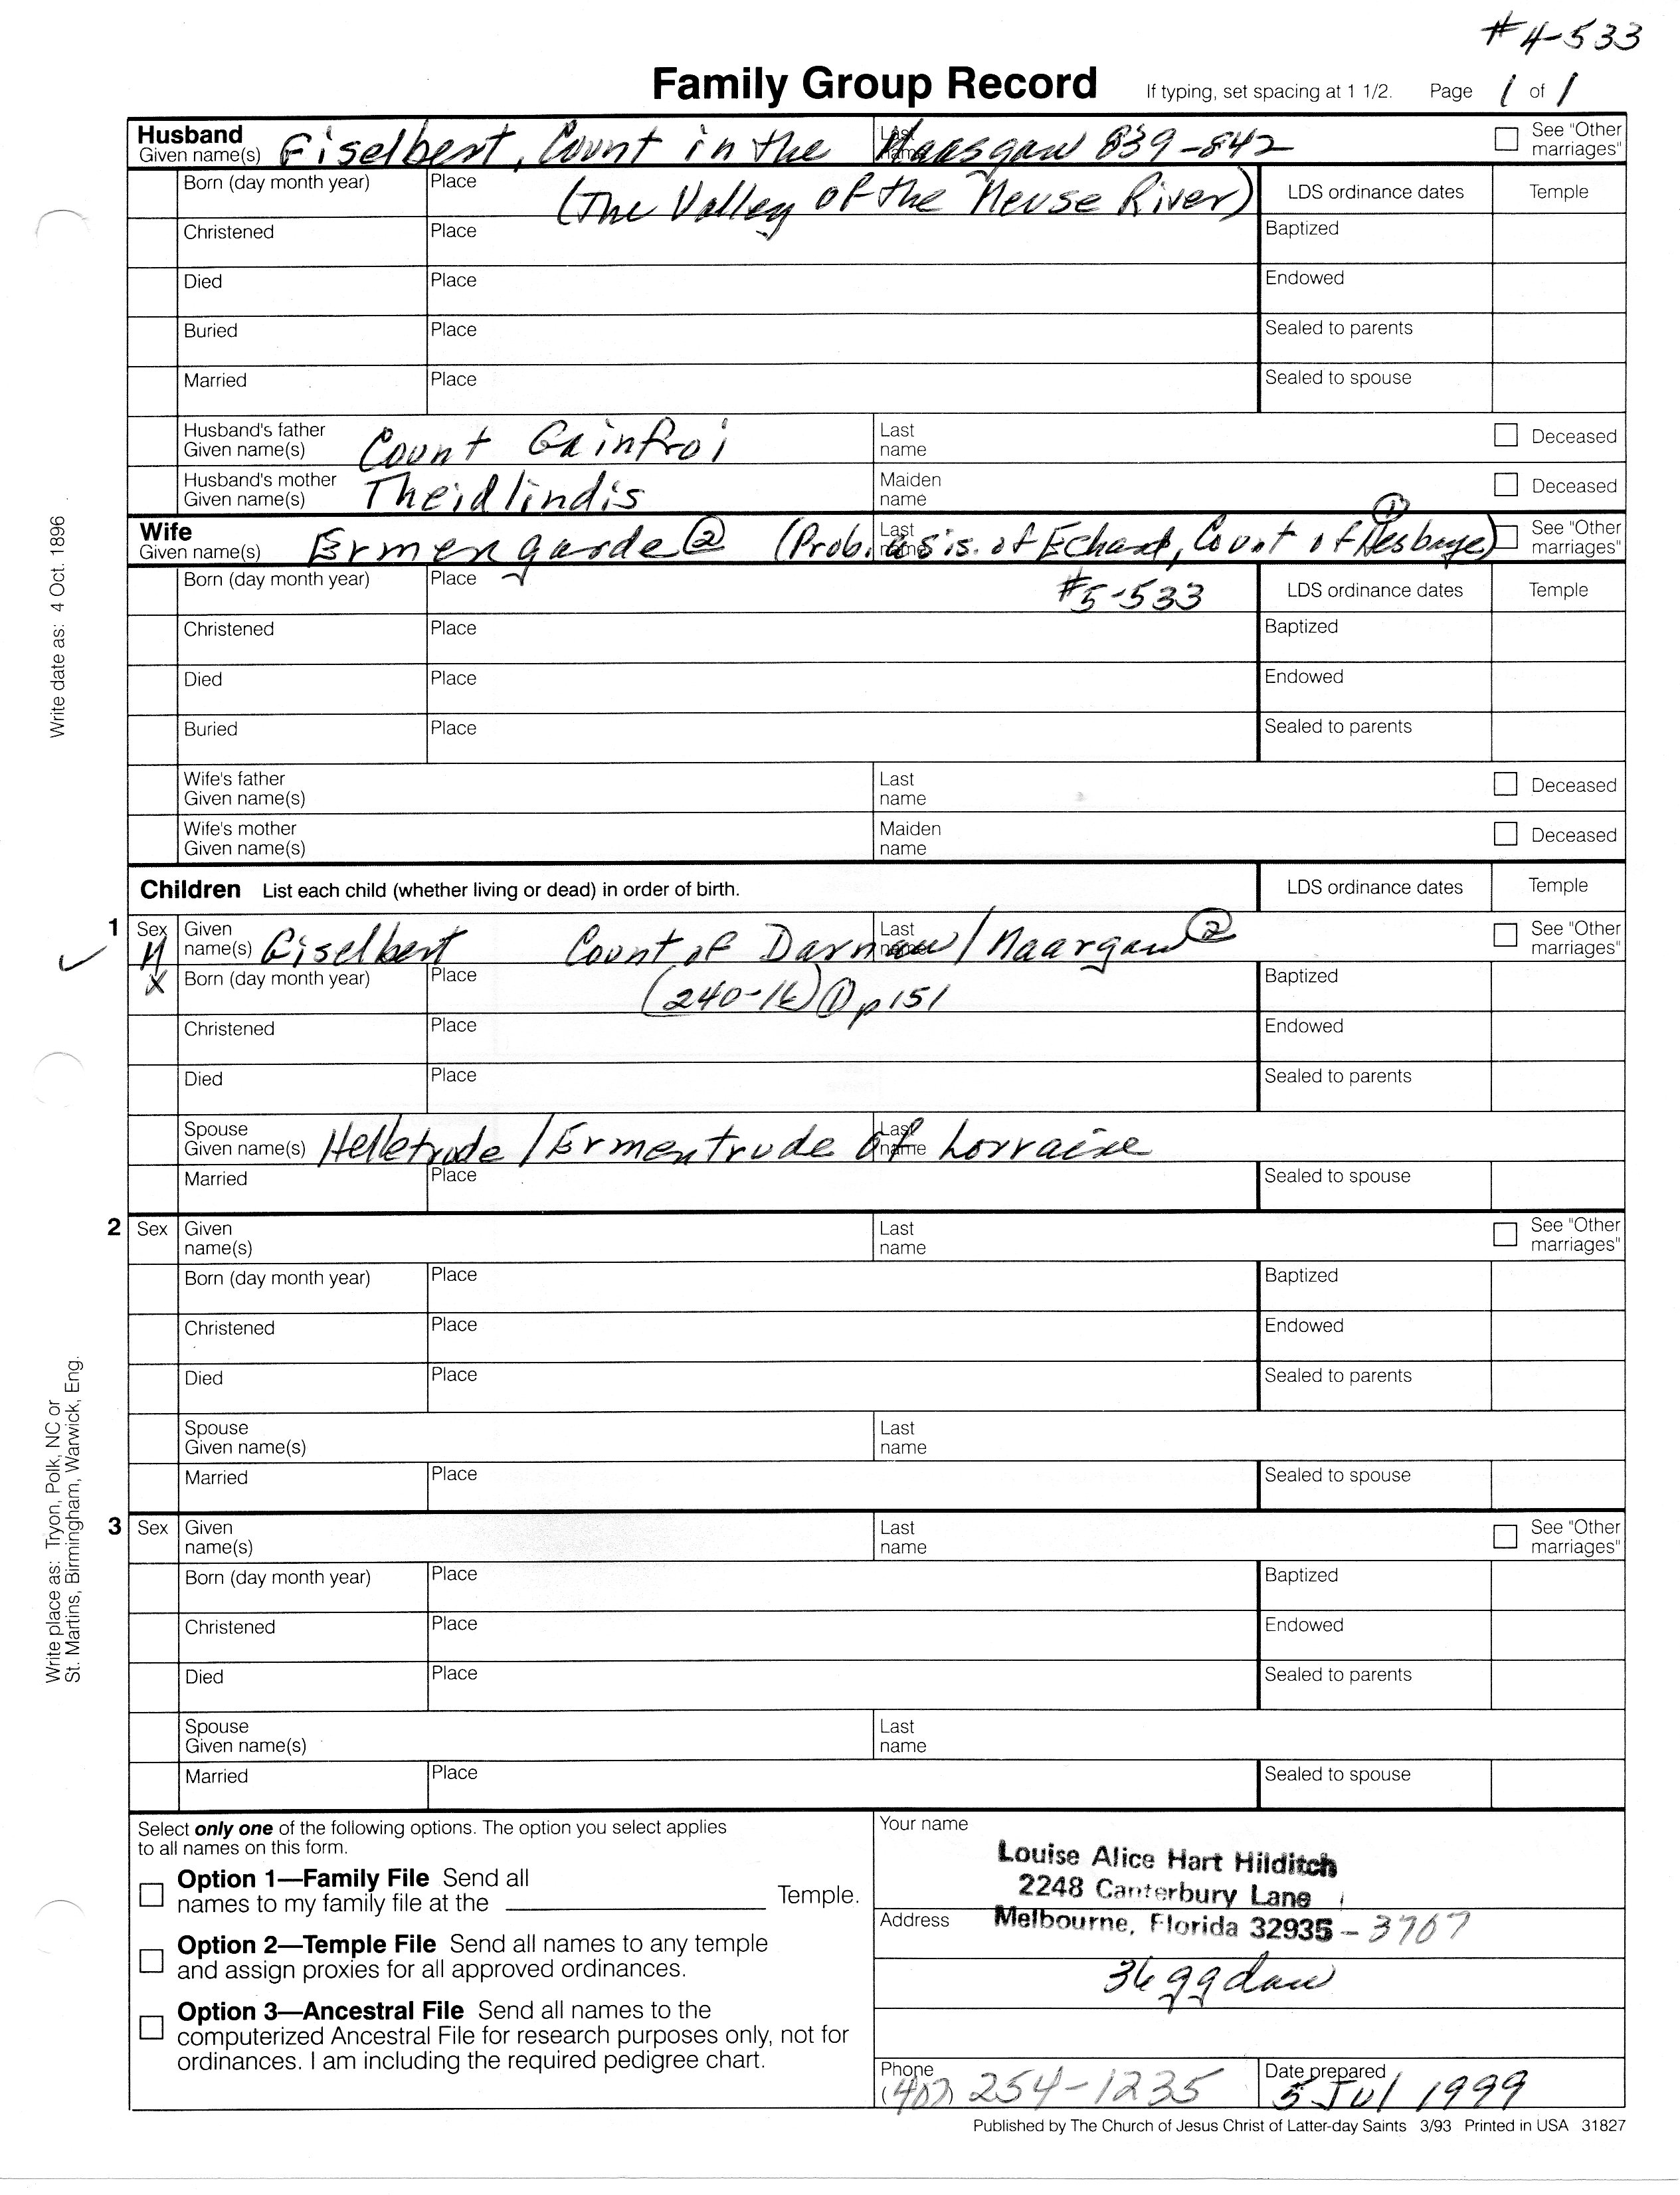 #4-533
Family Group Record If typing, set spacing at 1 1/2. Page 1 of 1
Husband
Given name(s) Giselbert, Count in the Last name Maasgau 839-842 See "Other marriages"
Born (day month year) Place (The Valley of the Meuse River) LDS ordinance dates Temple
Christened Place Baptized
Died Place Endowed
Buried Place Sealed to parents
Married Place Sealed to spouse
Husband's father Given name(s) Count Gainfroi Last name Deceased
Husband's mother Given name(s) Theidlindis Maiden name Deceased
Wife
Given name(s) Ermengarde ② (Prob. a sis. of Echard, Count of Hesbaye) ① Last name See "Other marriages"
Born (day month year) Place #5-533 LDS ordinance dates Temple
Christened Place Baptized
Died Place Endowed
Buried Place Sealed to parents
Wife's father Given name(s) Last name Deceased
Wife's mother Given name(s) Maiden name Deceased
Children List each child (whether living or dead) in order of birth. LDS ordinance dates Temple
1 Sex M Given name(s) Giselbert Count of Darnau/Maargau ② Last name See "Other marriages"
X Born (day month year) Place (240-16) ① p 151 Baptized
Christened Place Endowed
Died Place Sealed to parents
Spouse Given name(s) Helletrude/Ermentrude of Lorraine Last name
Married Place Sealed to spouse
2 Sex Given name(s) Last name See "Other marriages"
Born (day month year) Place Baptized
Christened Place Endowed
Died Place Sealed to parents
Spouse Given name(s) Last name
Married Place Sealed to spouse
3 Sex Given name(s) Last name See "Other marriages"
Born (day month year) Place Baptized
Christened Place Endowed
Died Place Sealed to parents
Spouse Given name(s) Last name
Married Place Sealed to spouse
Write date as: 4 Oct. 1896
Write place as: Tryon, Polk, NC or
St. Martins, Birmingham, Warwick, Eng.
Select only one of the following options. The option you select applies
to all names on this form.
Option 1—Family File Send all
names to my family file at the Temple.
Option 2—Temple File Send all names to any temple
and assign proxies for all approved ordinances.
Option 3—Ancestral File Send all names to the
computerized Ancestral File for research purposes only, not for
ordinances. I am including the required pedigree chart.
Your name
Louise Alice Hart Hilditch
2248 Canterbury Lane
Address Melbourne, Florida 32935-3707
36 ggdau
Phone (407) 254-1235 Date prepared 5 Jul 1999
Published by The Church of Jesus Christ of Latter-day Saints 3/93 Printed in USA 31827